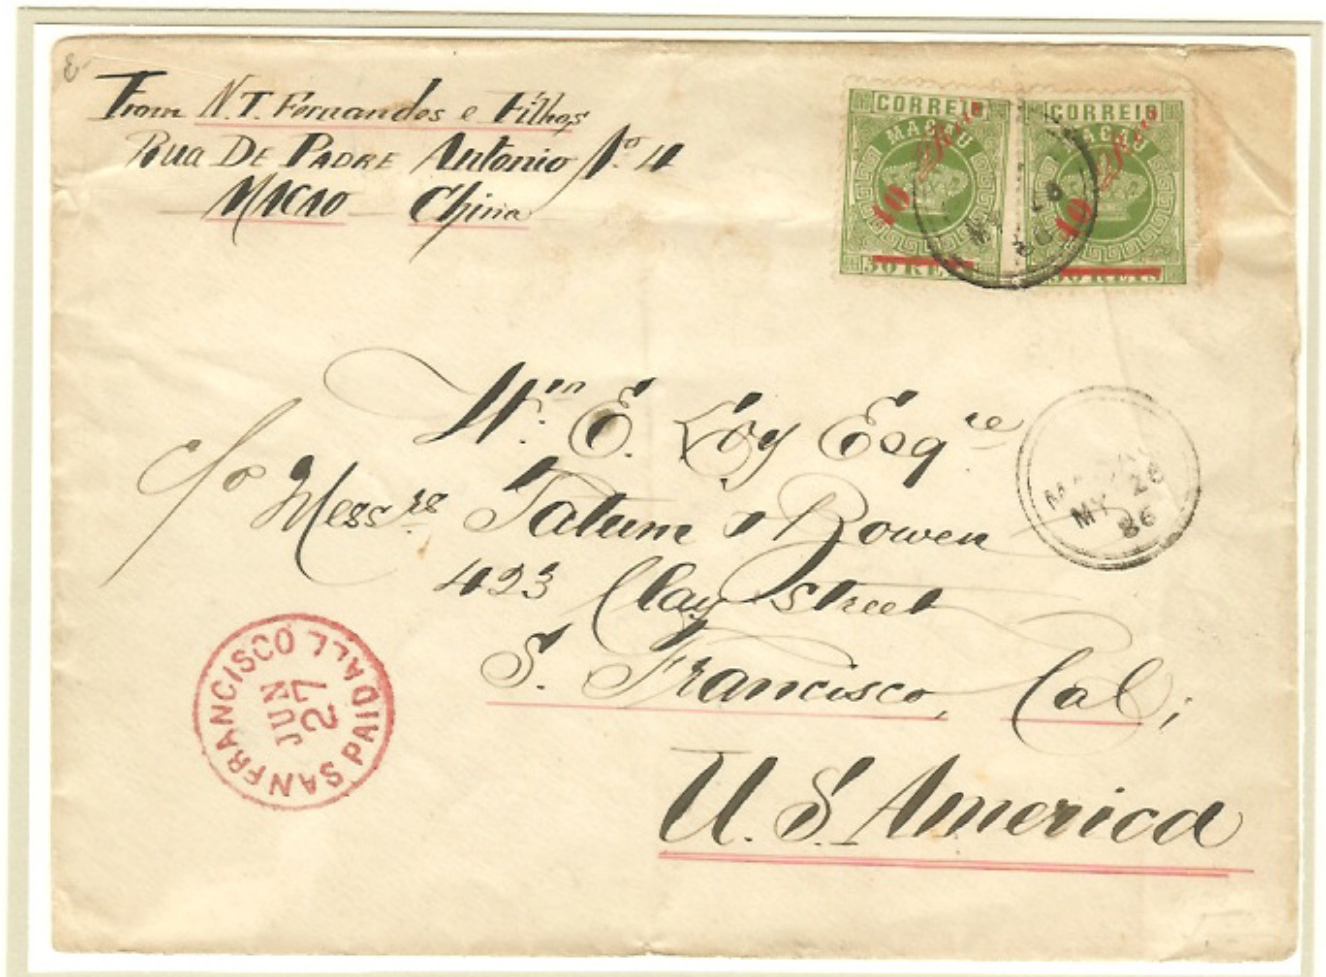 From N.T. Fernandes e Filhos
Rua De Padre Antonio No 4
Macao China
CORREIO
MACAU
10 Reis
50 REIS
CORREIO
MACAU
10 Reis
50 REIS
MY 28
86
Wm. E. Loy Esqre
c/o Messrs Tatum & Bowen
423 Clay street
S. Francisco, Cal;
U.S. America
MACAU
MY 28
86
SAN FRANCISCO
PAID ALL
JUN
27